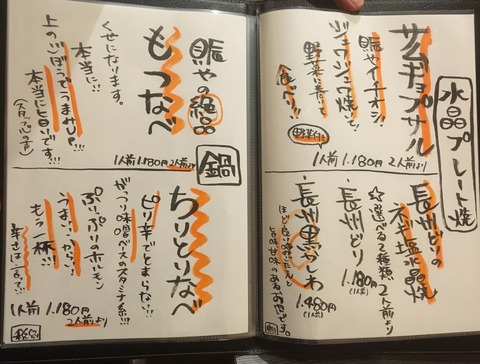 水晶プレート焼
サムギョプサル
賑やイチオシ!
ジュワジュワ焼いて!
野菜に巻いて
食べて!!
野菜付
1人前 1.180円 2人前より
長州どりの
ネギ塩水晶焼
☆選べる2種類 2人前より
長州どり
1.180円(1人前)
長州黒かしわ
1.480円(1人前)
ほど良い歯ごたえと
旨味甘味のあるお肉です。
鍋
賑やの絶品
もつなべ
くせになります。
本当に!!
上のごぼうでうまさUP!!!
本当に旨いです!!!
(スタッフ心の声)
1人前 1.180円 2人前より
ちりとりなべ
ピリ辛でとまらない!!!
がっつり味噌ベースのスタミナ系!!!
ぷりっぷりの赤ホルモン
うまい!から!
もう一杯!!
辛さは言って!!!
1人前 1.180円
2人前より
税込